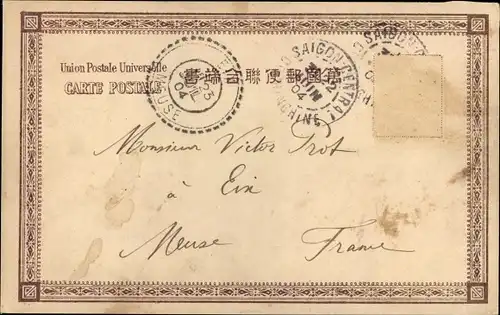 Union Postale Universelle
萬國郵便聯合端書
CARTE POSTALE
SAIGON-CENTRAL
JUIN
04
COCHINCHINE
23
04
MEUSE
SAIGON
Monsieur Victor Prot
à
Ein
Meuse France